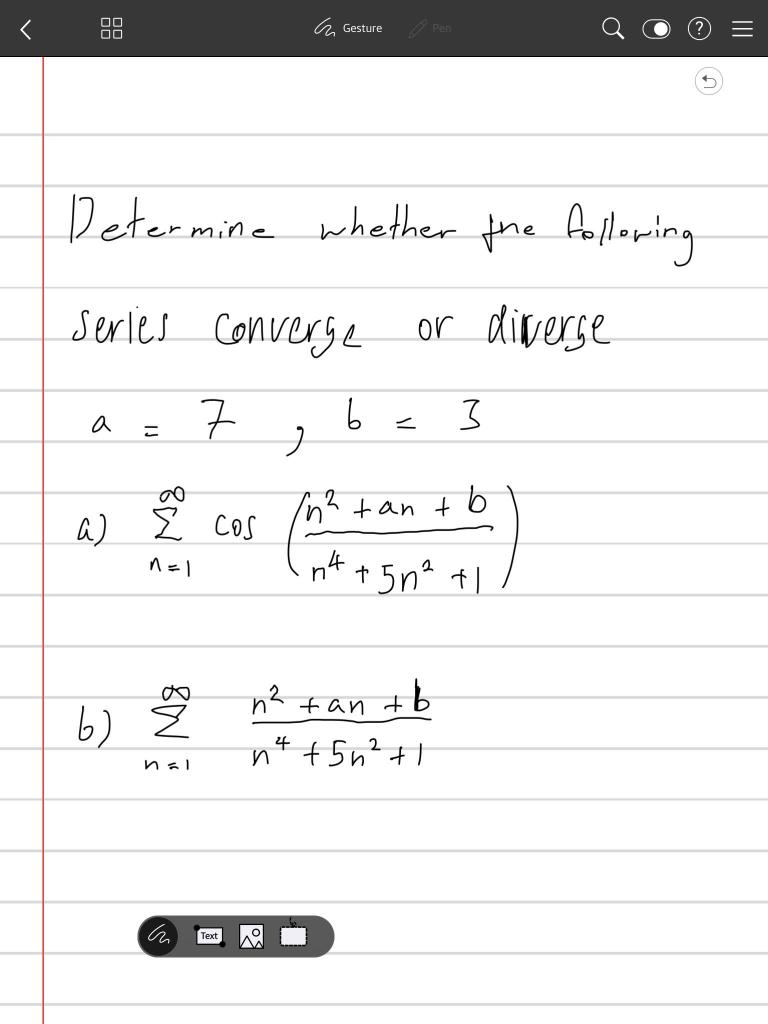 Gesture Pen
Determine whether the following
series converge or diverge
a = 7 , b = 3
a) ∑_{n=1}^{∞} cos ( (n² + an + b) / (n⁴ + 5n² + 1) )
b) ∑_{n=1}^{∞} (n² + an + b) / (n⁴ + 5n² + 1)
Text